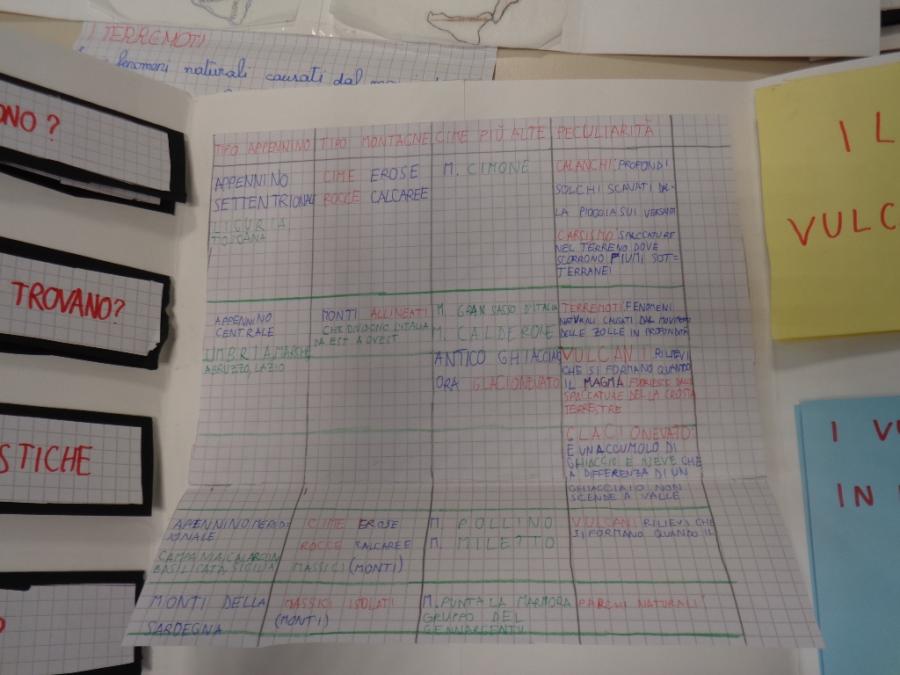 I TERREMOTI
fenomeni naturali causati dal
ONO?
TROVANO?
STICHE
TIPO APPENNINO TIPO MONTAGNE CIME PIÙ ALTE PECULIARITÀ
APPENNINO
SETTENTRIONAL
LIGURIA
TOSCANA
CIME EROSE
ROCCE CALCAREE
M. CIMONE
CALANCHI: PROFONDI
SOLCHI SCAVATI DAL-
LA PIOGGIA SUI VERSANTI
CARSISMO SPACCATURE
NEL TERRENO DOVE
SCORRONO FIUMI SOT=
TERRANEI
APPENNINO
CENTRALE
UMBRIA, MARCHE
ABRUZZO, LAZIO
MONTI ALLINEATI
CHE DIVIDONO L'ITALIA
DA EST A OVEST
M. GRAN SASSO D'ITALIA
M. CALDERONE
ANTICO GHIACCIAIO
ORA GLACIONEVATO
TERREMOTI: FENOMENI
NATURALI CAUSATI DAL MOVIMENTO
DELLE ZOLLE IN PROFONDITÀ
VULCANI: RILIEVI
CHE SI FORMANO QUANDO
IL MAGMA FUORIESCE DALLE
SPACCATURE DELLA CROSTA
TERRESTRE
GLACIONEVATO:
È UN ACCUMOLO DI
GHIACCIO E NEVE CHE
A DIFFERENZA DI UN
GHIACCIAIO NON
SCENDE A VALLE
APENNINO MERIDI
IONALE
CAMPANIA, CALABRIA
BASILICATA, SICILIA
CIME EROSE
ROCCE CALCAREE
MASSICI (MONTI)
M. POLLINO
M. MILETTO
VULCANI RILIEVI CHE
SI FORMANO QUANDO IL
MONTI DELLA
SARDEGNA
MASSICI ISOLATI
(MONTI)
M. PUNTA LA MARMORA
GRUPPO DEL
GENNARGENTU
PARCHI NATURALI
IL
VULC
I VU
IN